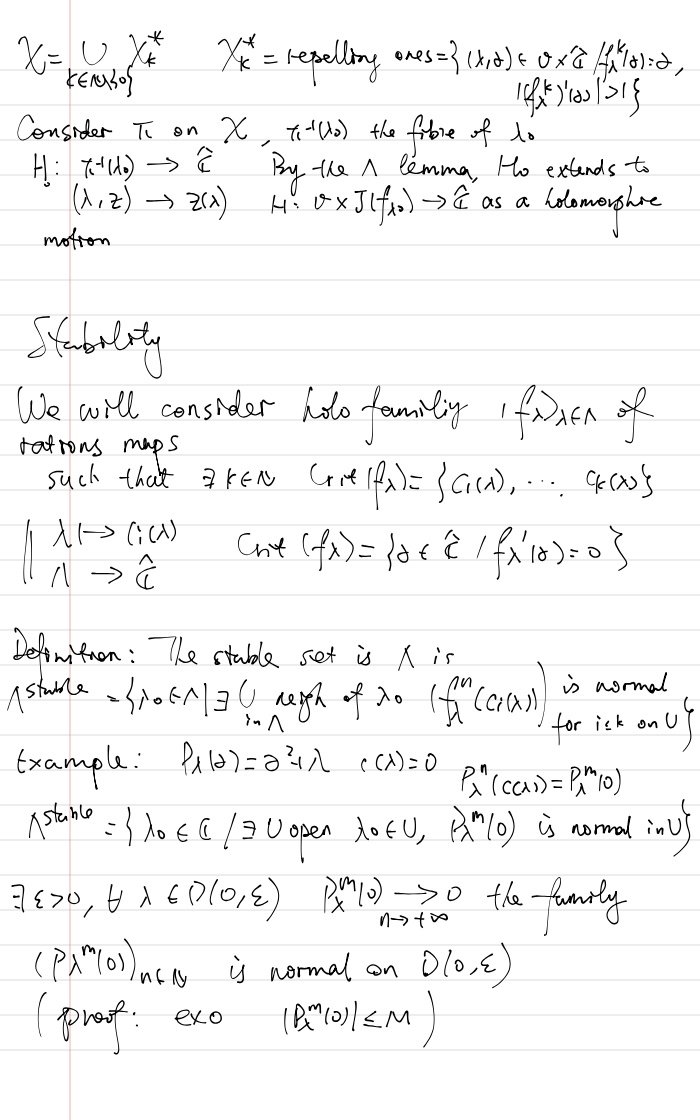 χ = ∪ χ_k^*    χ_k^* = repelling ones = {(λ,z) ∈ σ × Ĉ / f_λ^k(z) = z,
k∈ℕ\{0}    |(f_λ^k)'(z)| > 1}
Consider π on χ, π^{-1}(λ_0) the fibre of λ_0
H_0: π^{-1}(λ_0) → Ĉ    By the Λ lemma, H_0 extends to
(λ, z) → z(λ)    H: σ × J(f_{λ_0}) → Ĉ as a holomorphic
motion
Stability
We will consider holo familiy (f_λ)_{λ∈Λ} of
rations maps
such that ∃ k∈ℕ Crit(f_λ) = {c_1(λ), ... c_k(λ)}
‖ λ ↦ c_i(λ)    Crit(f_λ) = {z ∈ Ĉ / f_λ'(z) = 0}
Λ → Ĉ
Definition: The stable set is Λ is
Λ^{stable} = {λ_0 ∈ Λ | ∃ U neigh of λ_0 (f_λ^n(c_i(λ))) is normal
in Λ    for i≤k on U}
Example: P_λ(z) = z^2+λ    c(λ) = 0    P_λ^n(c(λ)) = P_λ^m(0)
Λ^{stable} = {λ_0 ∈ ℂ / ∃ U open λ_0 ∈ U, P_λ^m(0) is normal in U}
∃ ε>0, ∀ λ ∈ D(0,ε)    P_λ^m(0) → 0 the family
n→+∞
(P_λ^m(0))_{n∈ℕ} is normal on D(0,ε)
(proof: exo    |P_λ^m(0)| ≤ M)